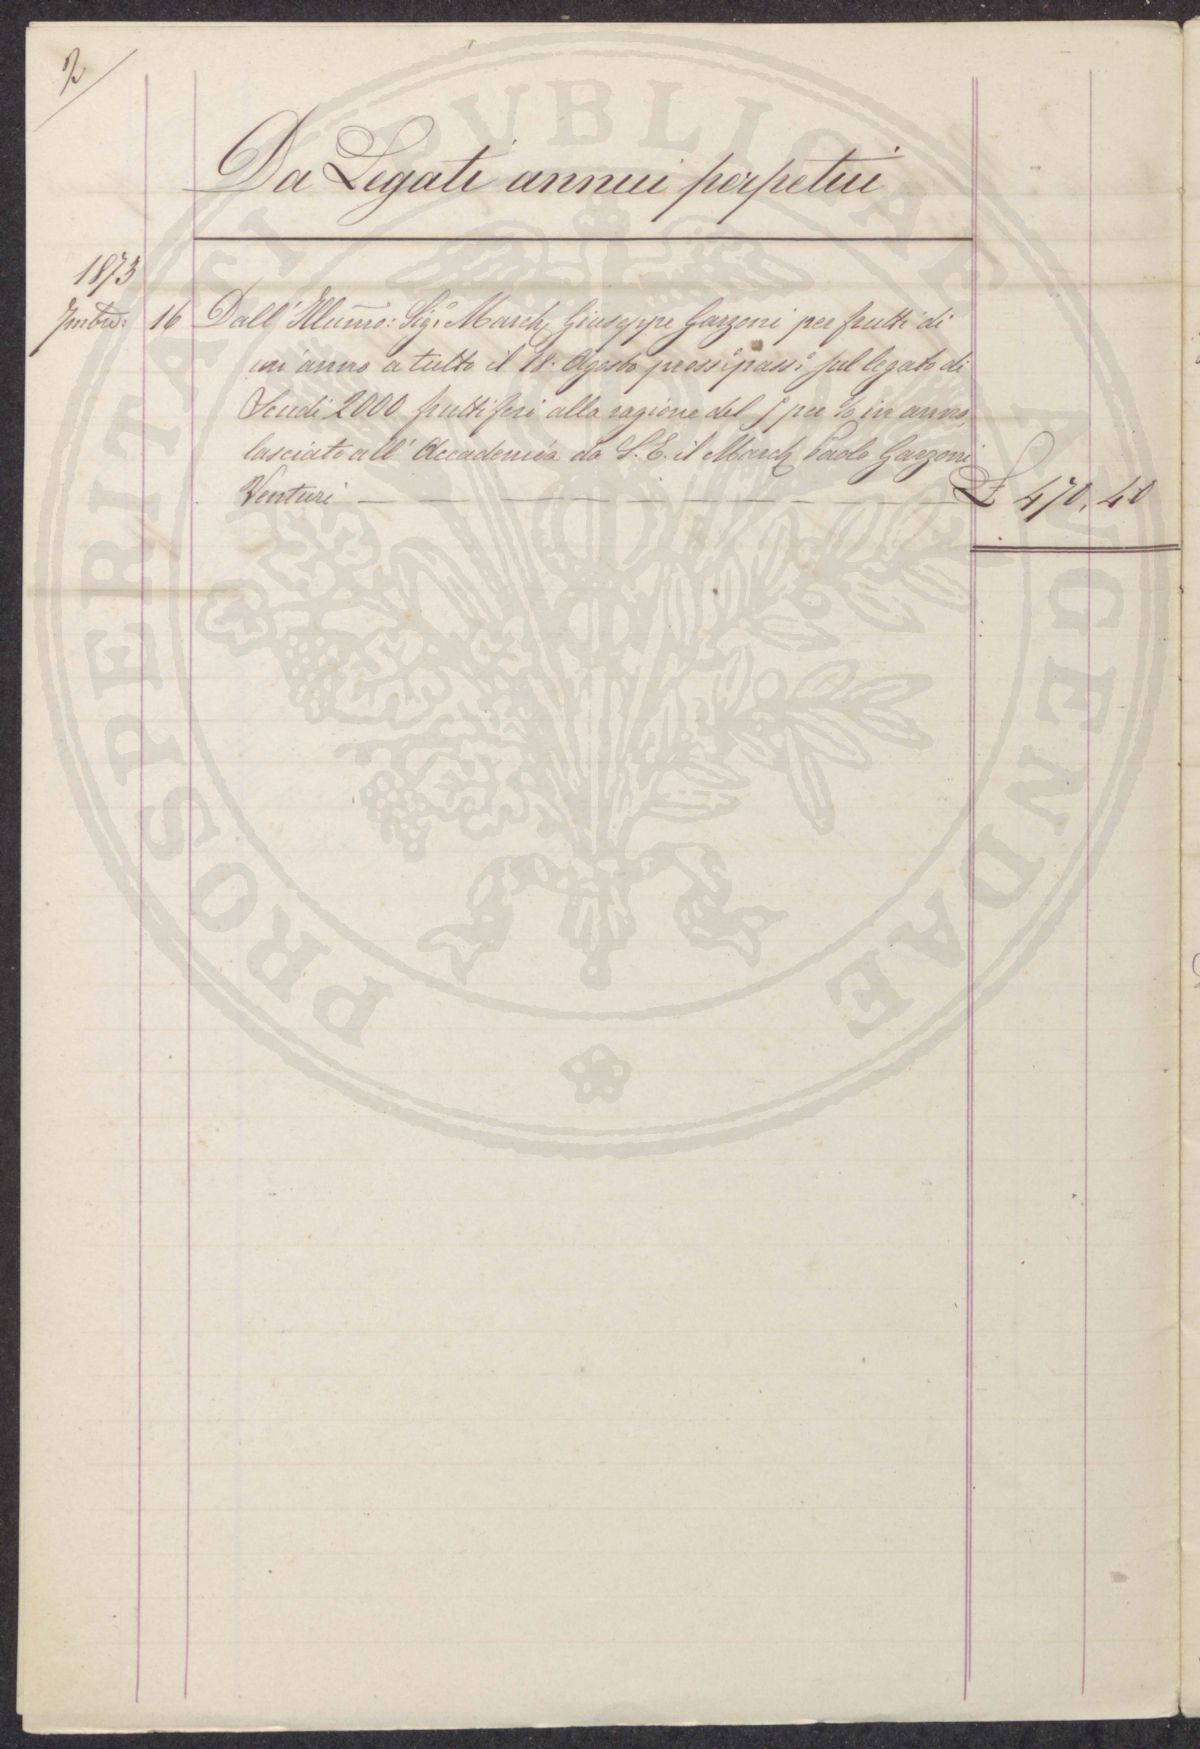 2
Da Legati annui perpetui
1873
7mbre: 16 Dall' Illumo: Sigr. March. Giuseppe Garzoni per frutti di
un' anno a tutto il 18. Agosto prossº. passº. sul legato di
Scudi 2000 fruttiferi alla ragione del 4 per % in anno,
lasciato all' Accademia da S. E. il March. Paolo Garzoni
Venturi — — — — — — — — — £ 470. 40
PROSPERITATI PVBLICAE AVGENDAE